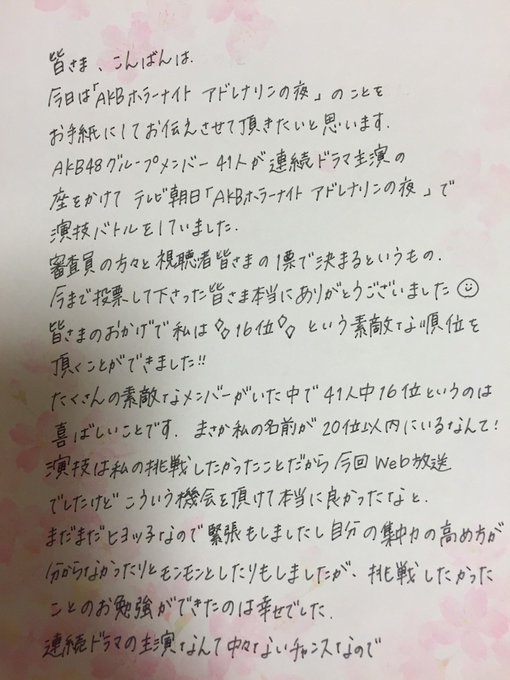 皆さま、こんばんは.
今日は「AKBホラーナイト アドレナリンの夜」のことを
お手紙にしてお伝えさせて頂きたいと思います.
AKB48グループメンバー41人が連続ドラマ主演の
座をかけてテレビ朝日「AKBホラーナイト アドレナリンの夜」で
演技バトルをしていました.
審査員の方々と視聴者皆さまの1票で決まるというもの.
今まで投票して下さった皆さま本当にありがとうございました☺
皆さまのおかげで私は◇◇16位◇◇という素敵な順位を
頂くことができました!!
たくさんの素敵なメンバーがいた中で41人中16位というのは
喜ばしいことです. まさか私の名前が20位以内にいるなんて!
演技は私の挑戦したかったことだから今回Web放送
でしたけどこういう機会を頂けて本当に良かったなと.
まだまだヒヨッ子なので緊張もしましたし自分の集中力の高め方が
分からなかったりとモンモンとしたりもしましたが、挑戦したかった
ことのお勉強ができたのは幸せでした.
連続ドラマの主演なんて中々ないチャンスなので